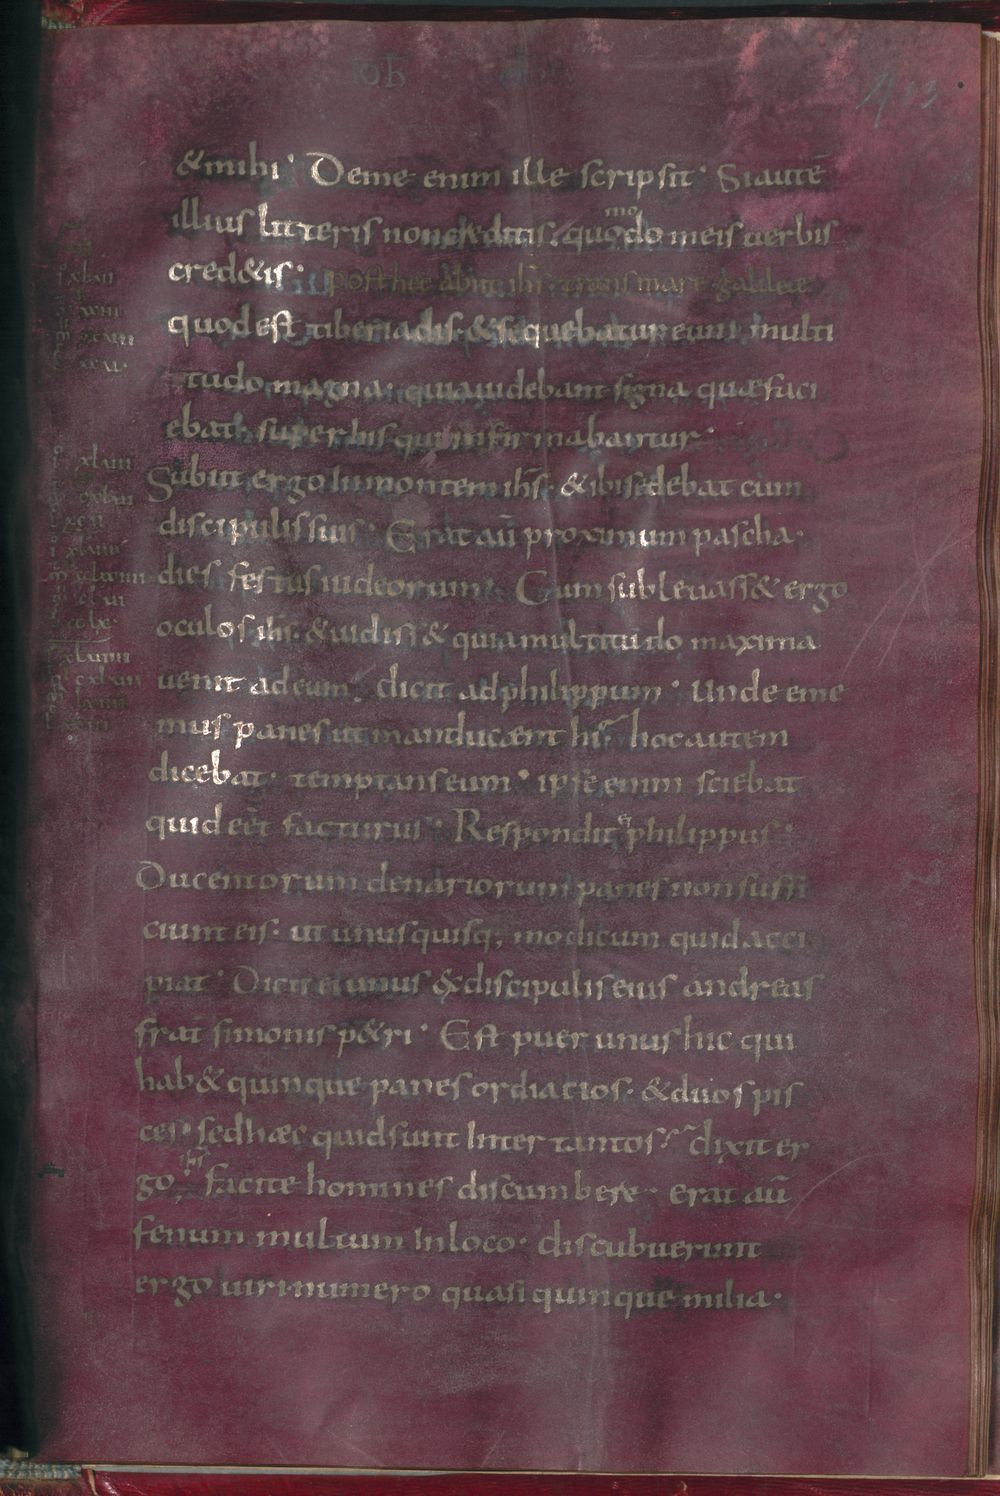 IOH
&mihi· Deme enim ille scripsit· Siautē
illius litteris noncreditis. quomodo meis uerbis
cred&is· posthec abiit ihs̄ trans mare galileae
quodest tiberiadis· &sequebatur eum multi
tudo magna· quiauidebant signa quaefaci
ebat· super his quiinfirmabantur·
Subiit ergo Inmontem ihs̄· &ibisedebat cum
discipulis suis· Erat aū proximum pascha·
dies festus iudeorum· Cum subleuass& ergo
oculos ihs̄· &uidiss& quiamultitudo maxima
uenit adeum· dicit adphilippum· Unde eme
mus panes ut manducent hi· hoc autem
dicebat· temptans eum· ipse enim sciebat
quid eēt facturus· Respondit ei philippus·
Ducentorum denariorum panes non suffi
ciunt eis· ut unusquisq; modicum quid acci
piat· Dicit ei unus &discipulis eius andreas
frat̄ simonis p&ri· Est puer unus hic qui
hab& quinque panes ordiacios· &duos pis
ces· sedhaec quid sunt Inter tantos· dixit er
go ihs̄ facite homines discumbere· erat aū
fenum multum Inloco· discubuerunt
ergo uiri·numero quasi quinque milia·